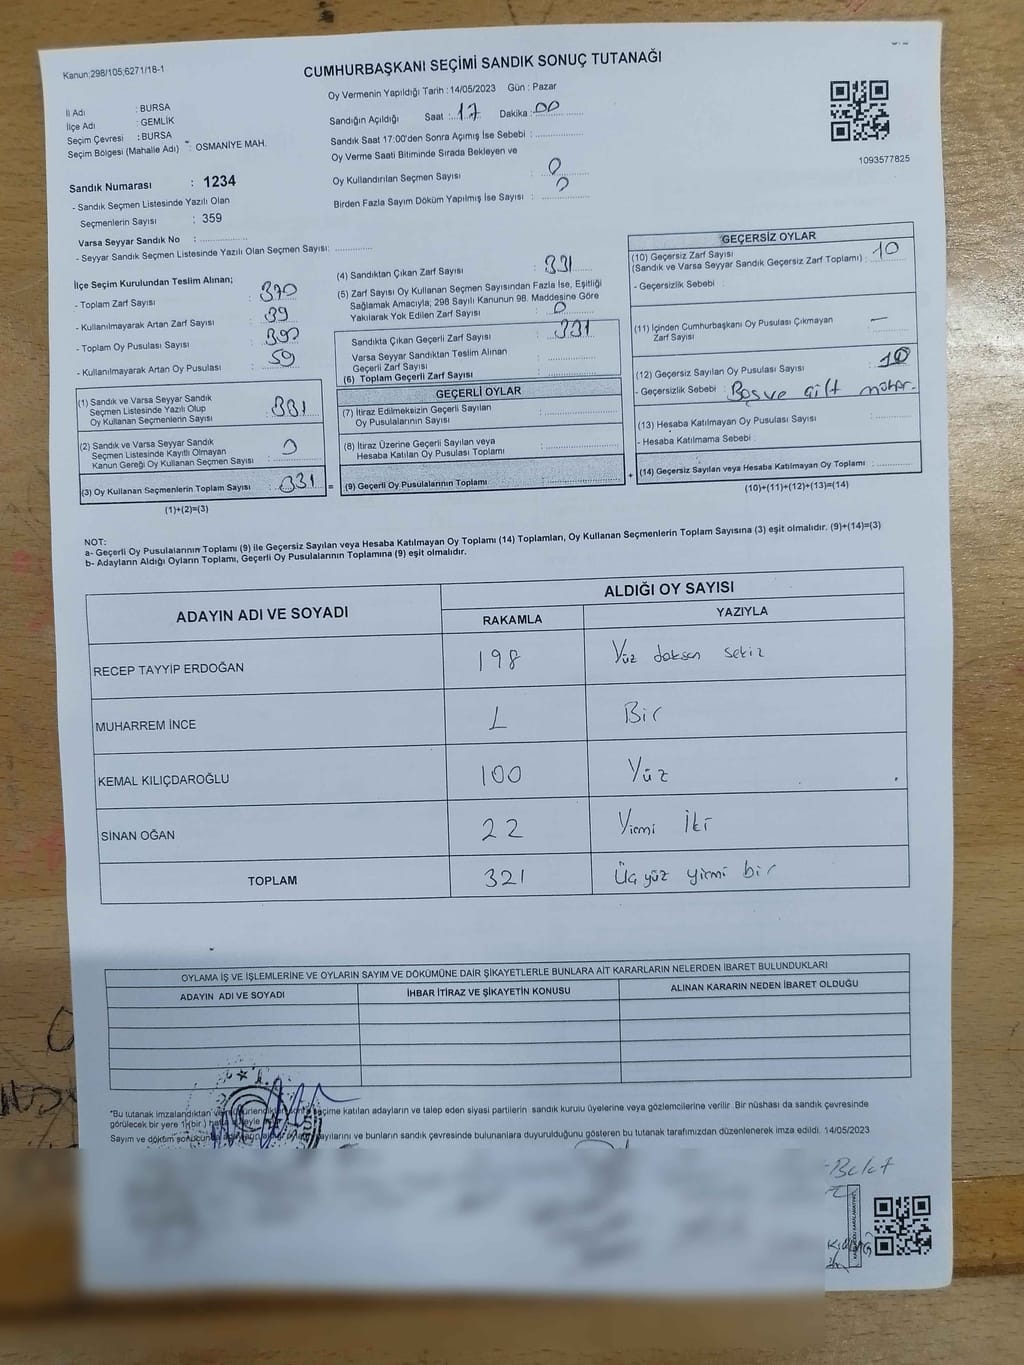 Kanun;298/105;6271/18-1
CUMHURBAŞKANI SEÇİMİ SANDIK SONUÇ TUTANAĞI
Oy Vermenin Yapıldığı Tarih : 14/05/2023 Gün : Pazar
İl Adı : BURSA
İlçe Adı : GEMLİK
Seçim Çevresi : BURSA
Seçim Bölgesi (Mahalle Adı) : OSMANİYE MAH.
Sandığın Açıldığı Saat : 17 Dakika : 00
Sandık Saat 17:00'den Sonra Açımış İse Sebebi :
Oy Verme Saati Bitiminde Sırada Bekleyen ve
Oy Kullandırılan Seçmen Sayısı : 0
Birden Fazla Sayım Döküm Yapılmış İse Sayısı : 0
1093577825
Sandık Numarası : 1234
- Sandık Seçmen Listesinde Yazılı Olan
Seçmenlerin Sayısı : 359
Varsa Seyyar Sandık No :
- Seyyar Sandık Seçmen Listesinde Yazılı Olan Seçmen Sayısı:
İlçe Seçim Kurulundan Teslim Alınan;
- Toplam Zarf Sayısı : 370
- Kullanılmayarak Artan Zarf Sayısı : 39
- Toplam Oy Pusulası Sayısı : 390
- Kullanılmayarak Artan Oy Pusulası : 59
(1) Sandık ve Varsa Seyyar Sandık
Seçmen Listesinde Yazılı Olup
Oy Kullanan Seçmenlerin Sayısı : 331
(2) Sandık ve Varsa Seyyar Sandık
Seçmen Listesinde Kayıtlı Olmayan
Kanun Gereği Oy Kullanan Seçmen Sayısı : 0
(3) Oy Kullanan Seçmenlerin Toplam Sayısı : 331
(1)+(2)=(3)
(4) Sandıktan Çıkan Zarf Sayısı : 331
(5) Zarf Sayısı Oy Kullanan Seçmen Sayısından Fazla İse, Eşitliği
Sağlamak Amacıyla; 298 Sayılı Kanunun 98. Maddesine Göre
Yakılarak Yok Edilen Zarf Sayısı : 0
Sandıkta Çıkan Geçerli Zarf Sayısı : 331
Varsa Seyyar Sandıktan Teslim Alınan
Geçerli Zarf Sayısı :
(6) Toplam Geçerli Zarf Sayısı :
GEÇERLİ OYLAR
(7) İtiraz Edilmeksizin Geçerli Sayılan
Oy Pusulalarının Sayısı :
(8) İtiraz Üzerine Geçerli Sayılan veya
Hesaba Katılan Oy Pusulası Toplamı :
= (9) Geçerli Oy Pusulalarının Toplamı :
GEÇERSİZ OYLAR
(10) Geçersiz Zarf Sayısı
(Sandık ve Varsa Seyyar Sandık Geçersiz Zarf Toplamı) : 10
- Geçersizlik Sebebi :
(11) İçinden Cumhurbaşkanı Oy Pusulası Çıkmayan
Zarf Sayısı : —
(12) Geçersiz Sayılan Oy Pusulası Sayısı : 10
- Geçersizlik Sebebi : Boş ve çift mühür.
(13) Hesaba Katılmayan Oy Pusulası Sayısı :
- Hesaba Katılmama Sebebi
+ (14) Geçersiz Sayılan veya Hesaba Katılmayan Oy Toplamı :
(10)+(11)+(12)+(13)=(14)
NOT:
a- Geçerli Oy Pusulalarının Toplamı (9) ile Geçersiz Sayılan veya Hesaba Katılmayan Oy Toplamı (14) Toplamları, Oy Kullanan Seçmenlerin Toplam Sayısına (3) eşit olmalıdır. (9)+(14)=(3)
b- Adayların Aldığı Oyların Toplamı, Geçerli Oy Pusulalarının Toplamına (9) eşit olmalıdır.
ADAYIN ADI VE SOYADI
ALDIĞI OY SAYISI
RAKAMLA YAZIYLA
RECEP TAYYİP ERDOĞAN 198 Yüz doksan sekiz
MUHARREM İNCE 1 Bir
KEMAL KILIÇDAROĞLU 100 Yüz
SİNAN OĞAN 22 Yirmi İki
TOPLAM 321 Üç yüz yirmi bir
OYLAMA İŞ VE İŞLEMLERİNE VE OYLARIN SAYIM VE DÖKÜMÜNE DAİR ŞİKAYETLERLE BUNLARA AİT KARARLARIN NELERDEN İBARET BULUNDUKLARI
ADAYIN ADI VE SOYADI İHBAR İTİRAZ VE ŞİKAYETİN KONUSU ALINAN KARARIN NEDEN İBARET OLDUĞU
*Bu tutanak imzalandıktan seçime katılan adayların ve talep eden siyasi partilerin sandık kurulu üyelerine veya gözlemcilerine verilir Bir nüshası da sandık çevresinde
görülecek bir yere 1(bir)
Sayım ve döküm sayılarını ve bunların sandık çevresinde bulunanlara duyurulduğunu gösteren bu tutanak tarafımızdan düzenlenerek imza edildi. 14/05/2023